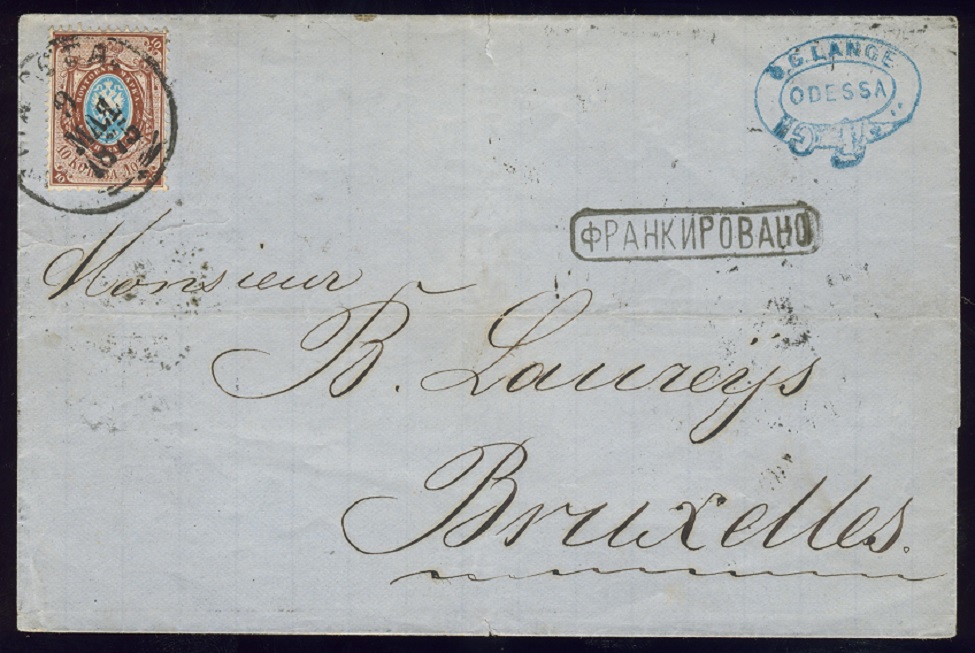 9
МАЯ
J.G. LANGE
ODESSA
ФРАНКИРОВАНО
Monsieur
B. Laureÿs
Bruxelles.